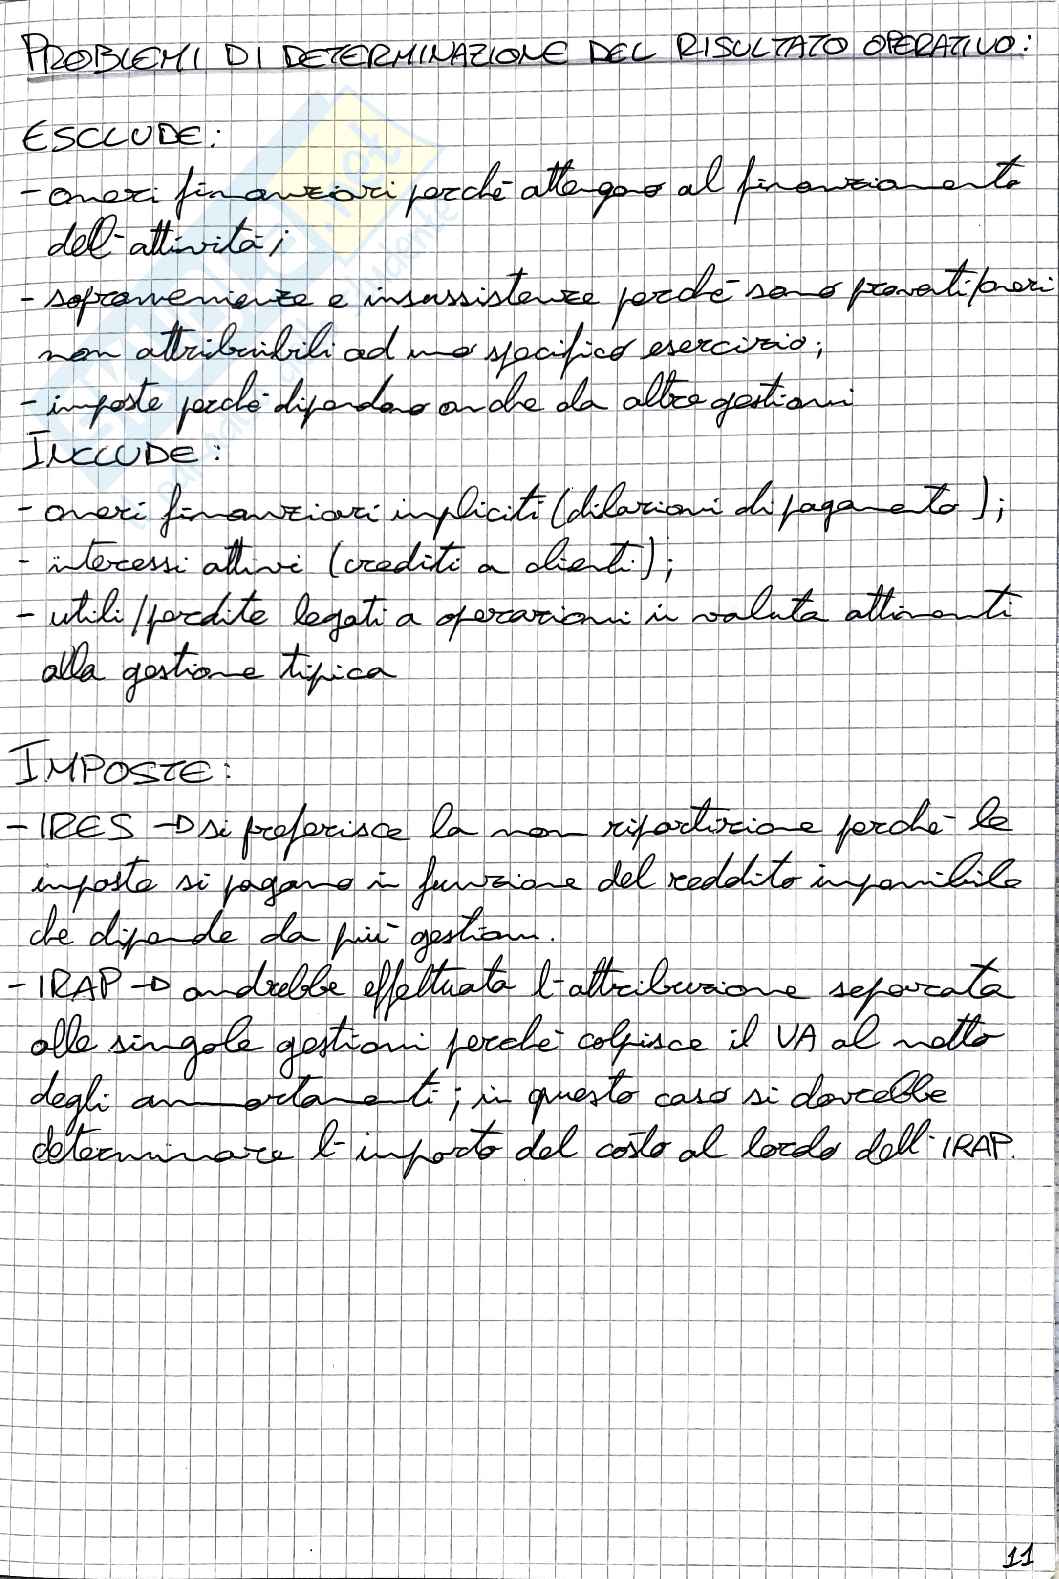 PROBLEMI DI DETERMINAZIONE DEL RISULTATO OPERATIVO:
ESCLUDE:
- oneri finanziari perché attengono al finanziamento
dell'attività;
- sopravvenienze e insussistenze perché sono proventi/oneri
non attribuibili ad uno specifico esercizio;
- imposte perché dipendono anche da altre gestioni
INCLUDE:
- oneri finanziari impliciti (dilazioni di pagamento);
- interessi attivi (crediti a clienti);
- utili/perdite legati a operazioni in valuta attinenti
alla gestione tipica
IMPOSTE:
- IRES → si preferisce la non ripartizione perché le
imposte si pagano in funzione del reddito imponibile
che dipende da più gestioni.
- IRAP → andrebbe effettuata l'attribuzione separata
alle singole gestioni perché colpisce il VA al netto
degli ammortamenti; in questo caso si dovrebbe
determinare l'importo del costo al lordo dell'IRAP.
11